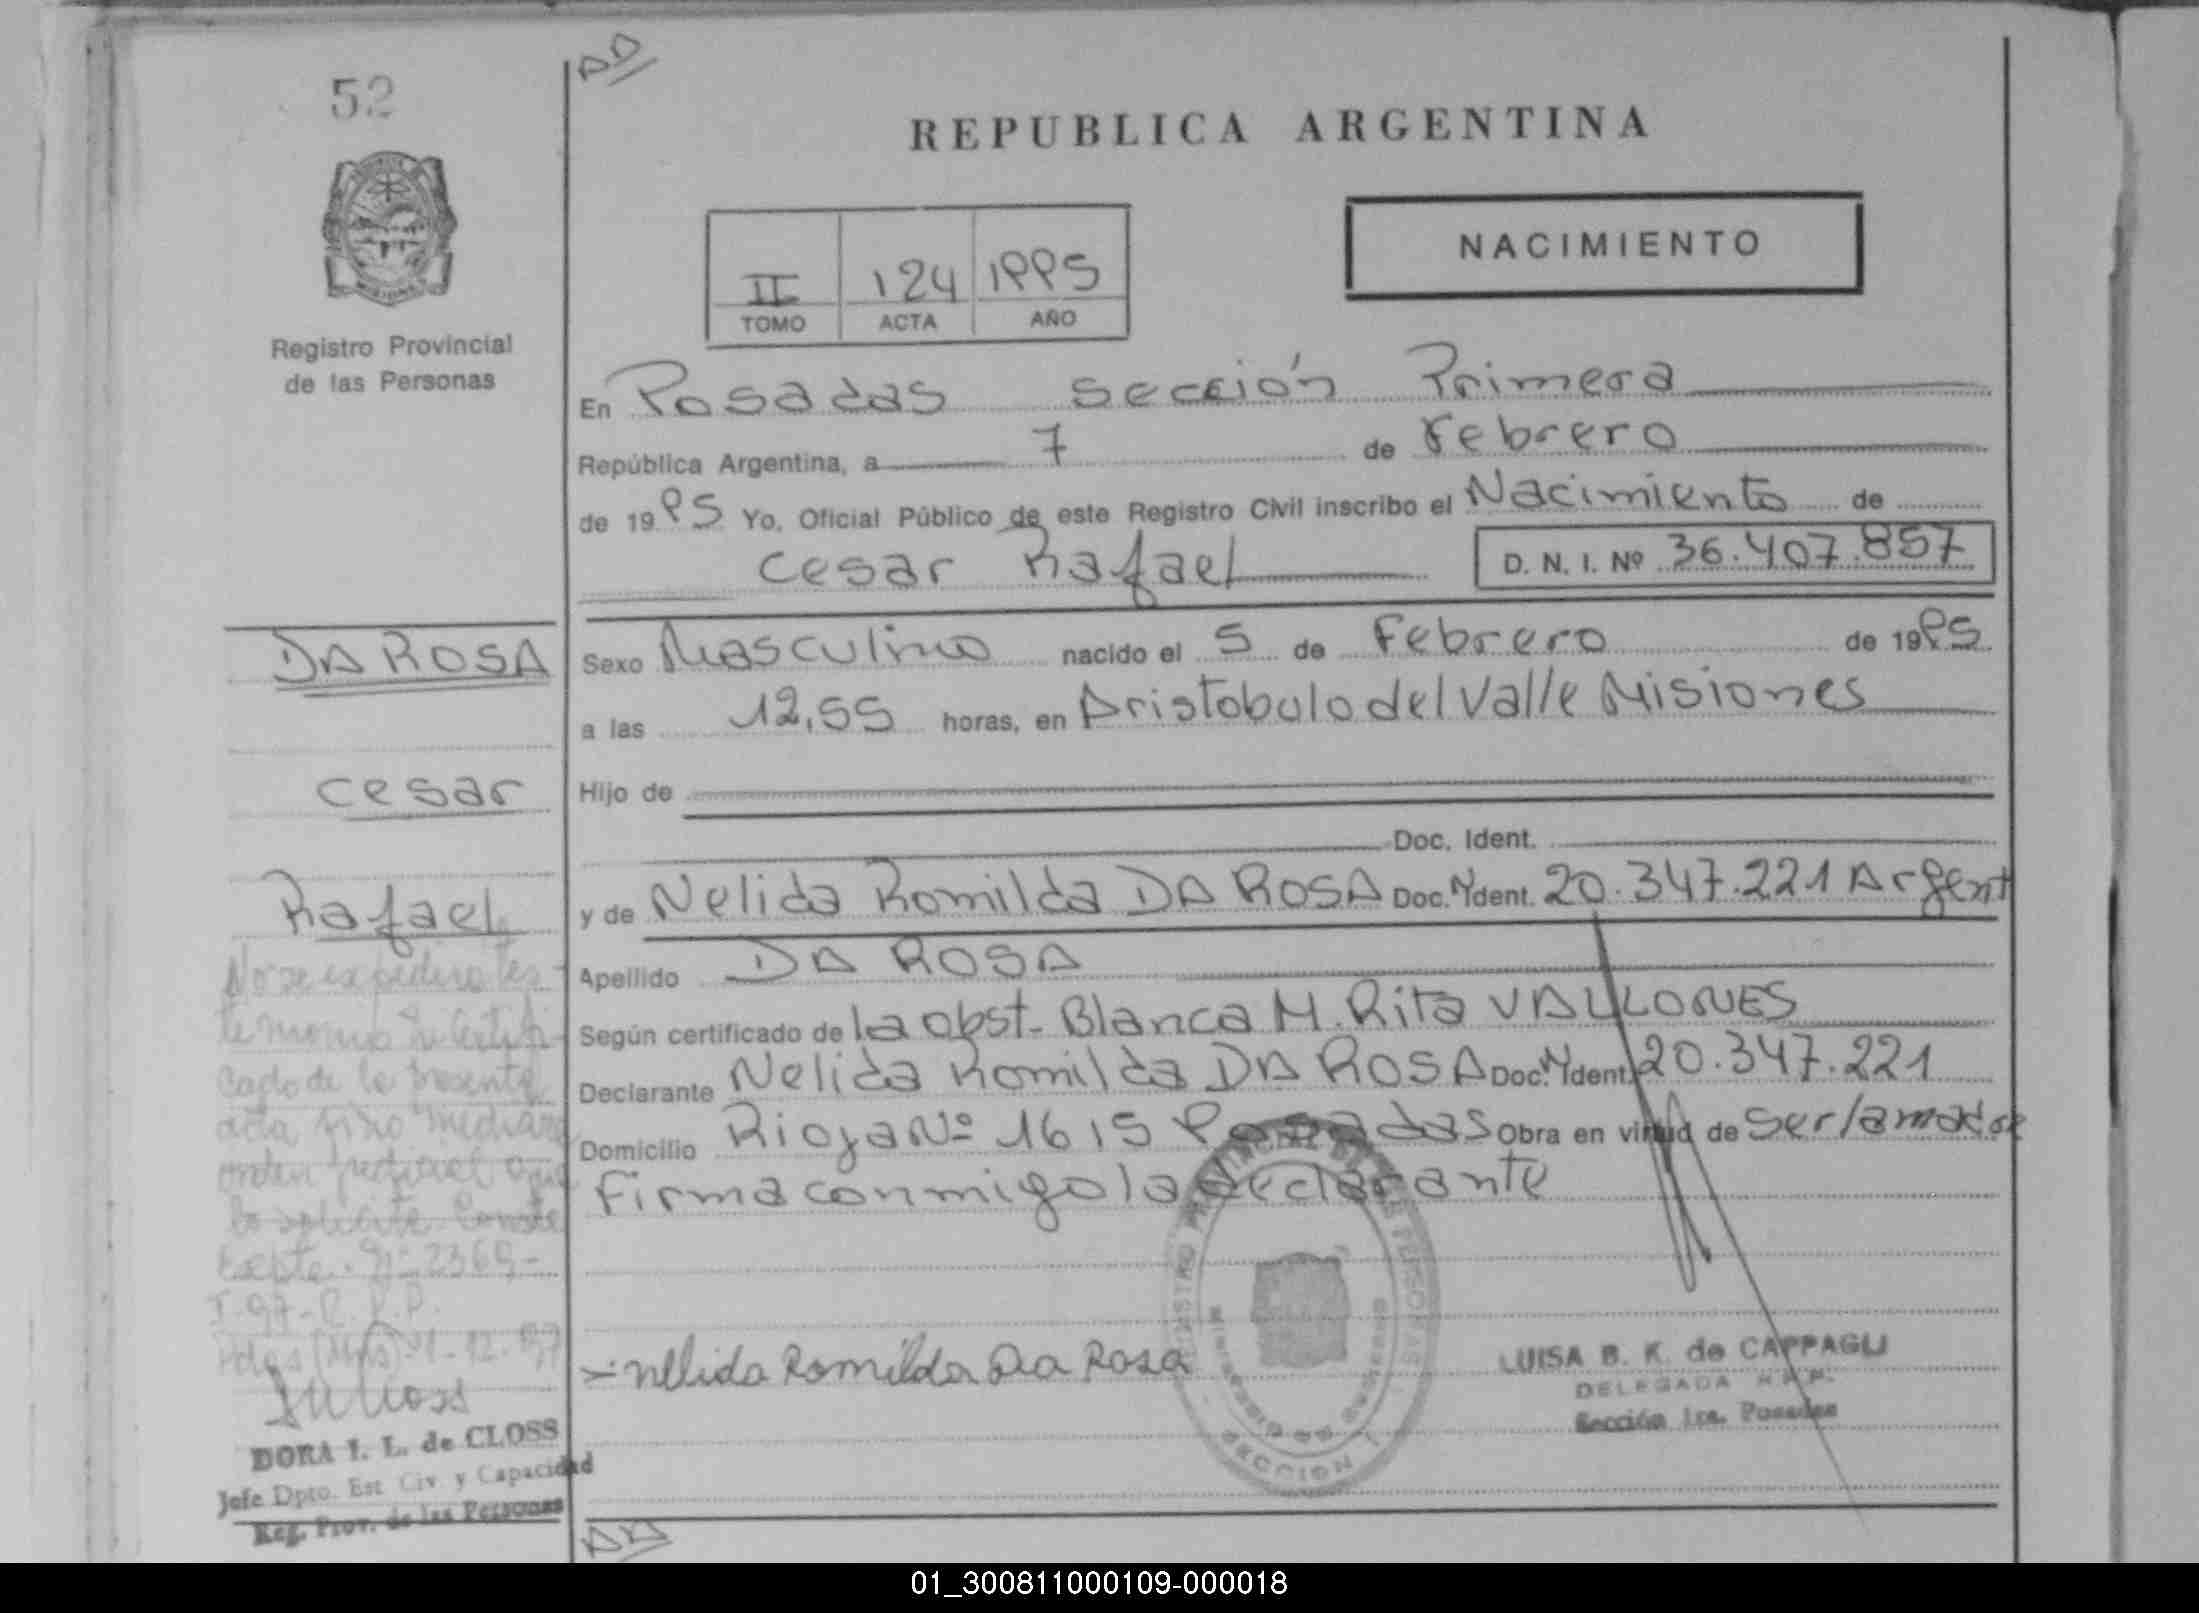 52
AD
REPUBLICA ARGENTINA
NACIMIENTO
II 124 1995
TOMO ACTA AÑO
Registro Provincial
de las Personas
En Posadas Sección Primera
República Argentina, a 7 de Febrero
de 1995 Yo, Oficial Público de este Registro Civil inscribo el Nacimiento de
Cesar Rafael D. N. I. Nº 36.407.857
DA ROSA
Cesar
Rafael
Sexo Masculino nacido el 5 de Febrero de 1995
a las 12,55 horas, en Aristobulo del Valle Misiones
Hijo de
Doc. Ident.
y de Nelida Romilda DA ROSA Doc. N Ident. 20.347.221 Argent
Apellido DA ROSA
Según certificado de la obst. Blanca M. Rita VALLONES
Declarante Nelida Romilda DA ROSA Doc. N Ident. 20.347.221
Domicilio Rioja Nº 1615 Posadas Obra en virtud de Ser la madre
Firma conmigo la declarante
No se expedira tes-
timonio ni certifi-
cado de la presente
acta sino mediante
orden judicial que
lo solicite. Conste
Expte. Nº 2369-
T-97-R.P.P.
Pdas (Mnes) 1-12-97
DORA I. L. de CLOSS
Jefe Dpto. Est. Civ. y Capacidad
Reg. Prov. de las Personas
Nelida Romilda Da Rosa
REGISTRO PROVINCIAL DE LAS PERSONAS
MINISTERIO DE GOBIERNO
SECCION 1
LUISA B. K. de CAPPAGLI
DELEGADA R.P.P.
Sección 1ra. Posadas
AD
01_300811000109-000018